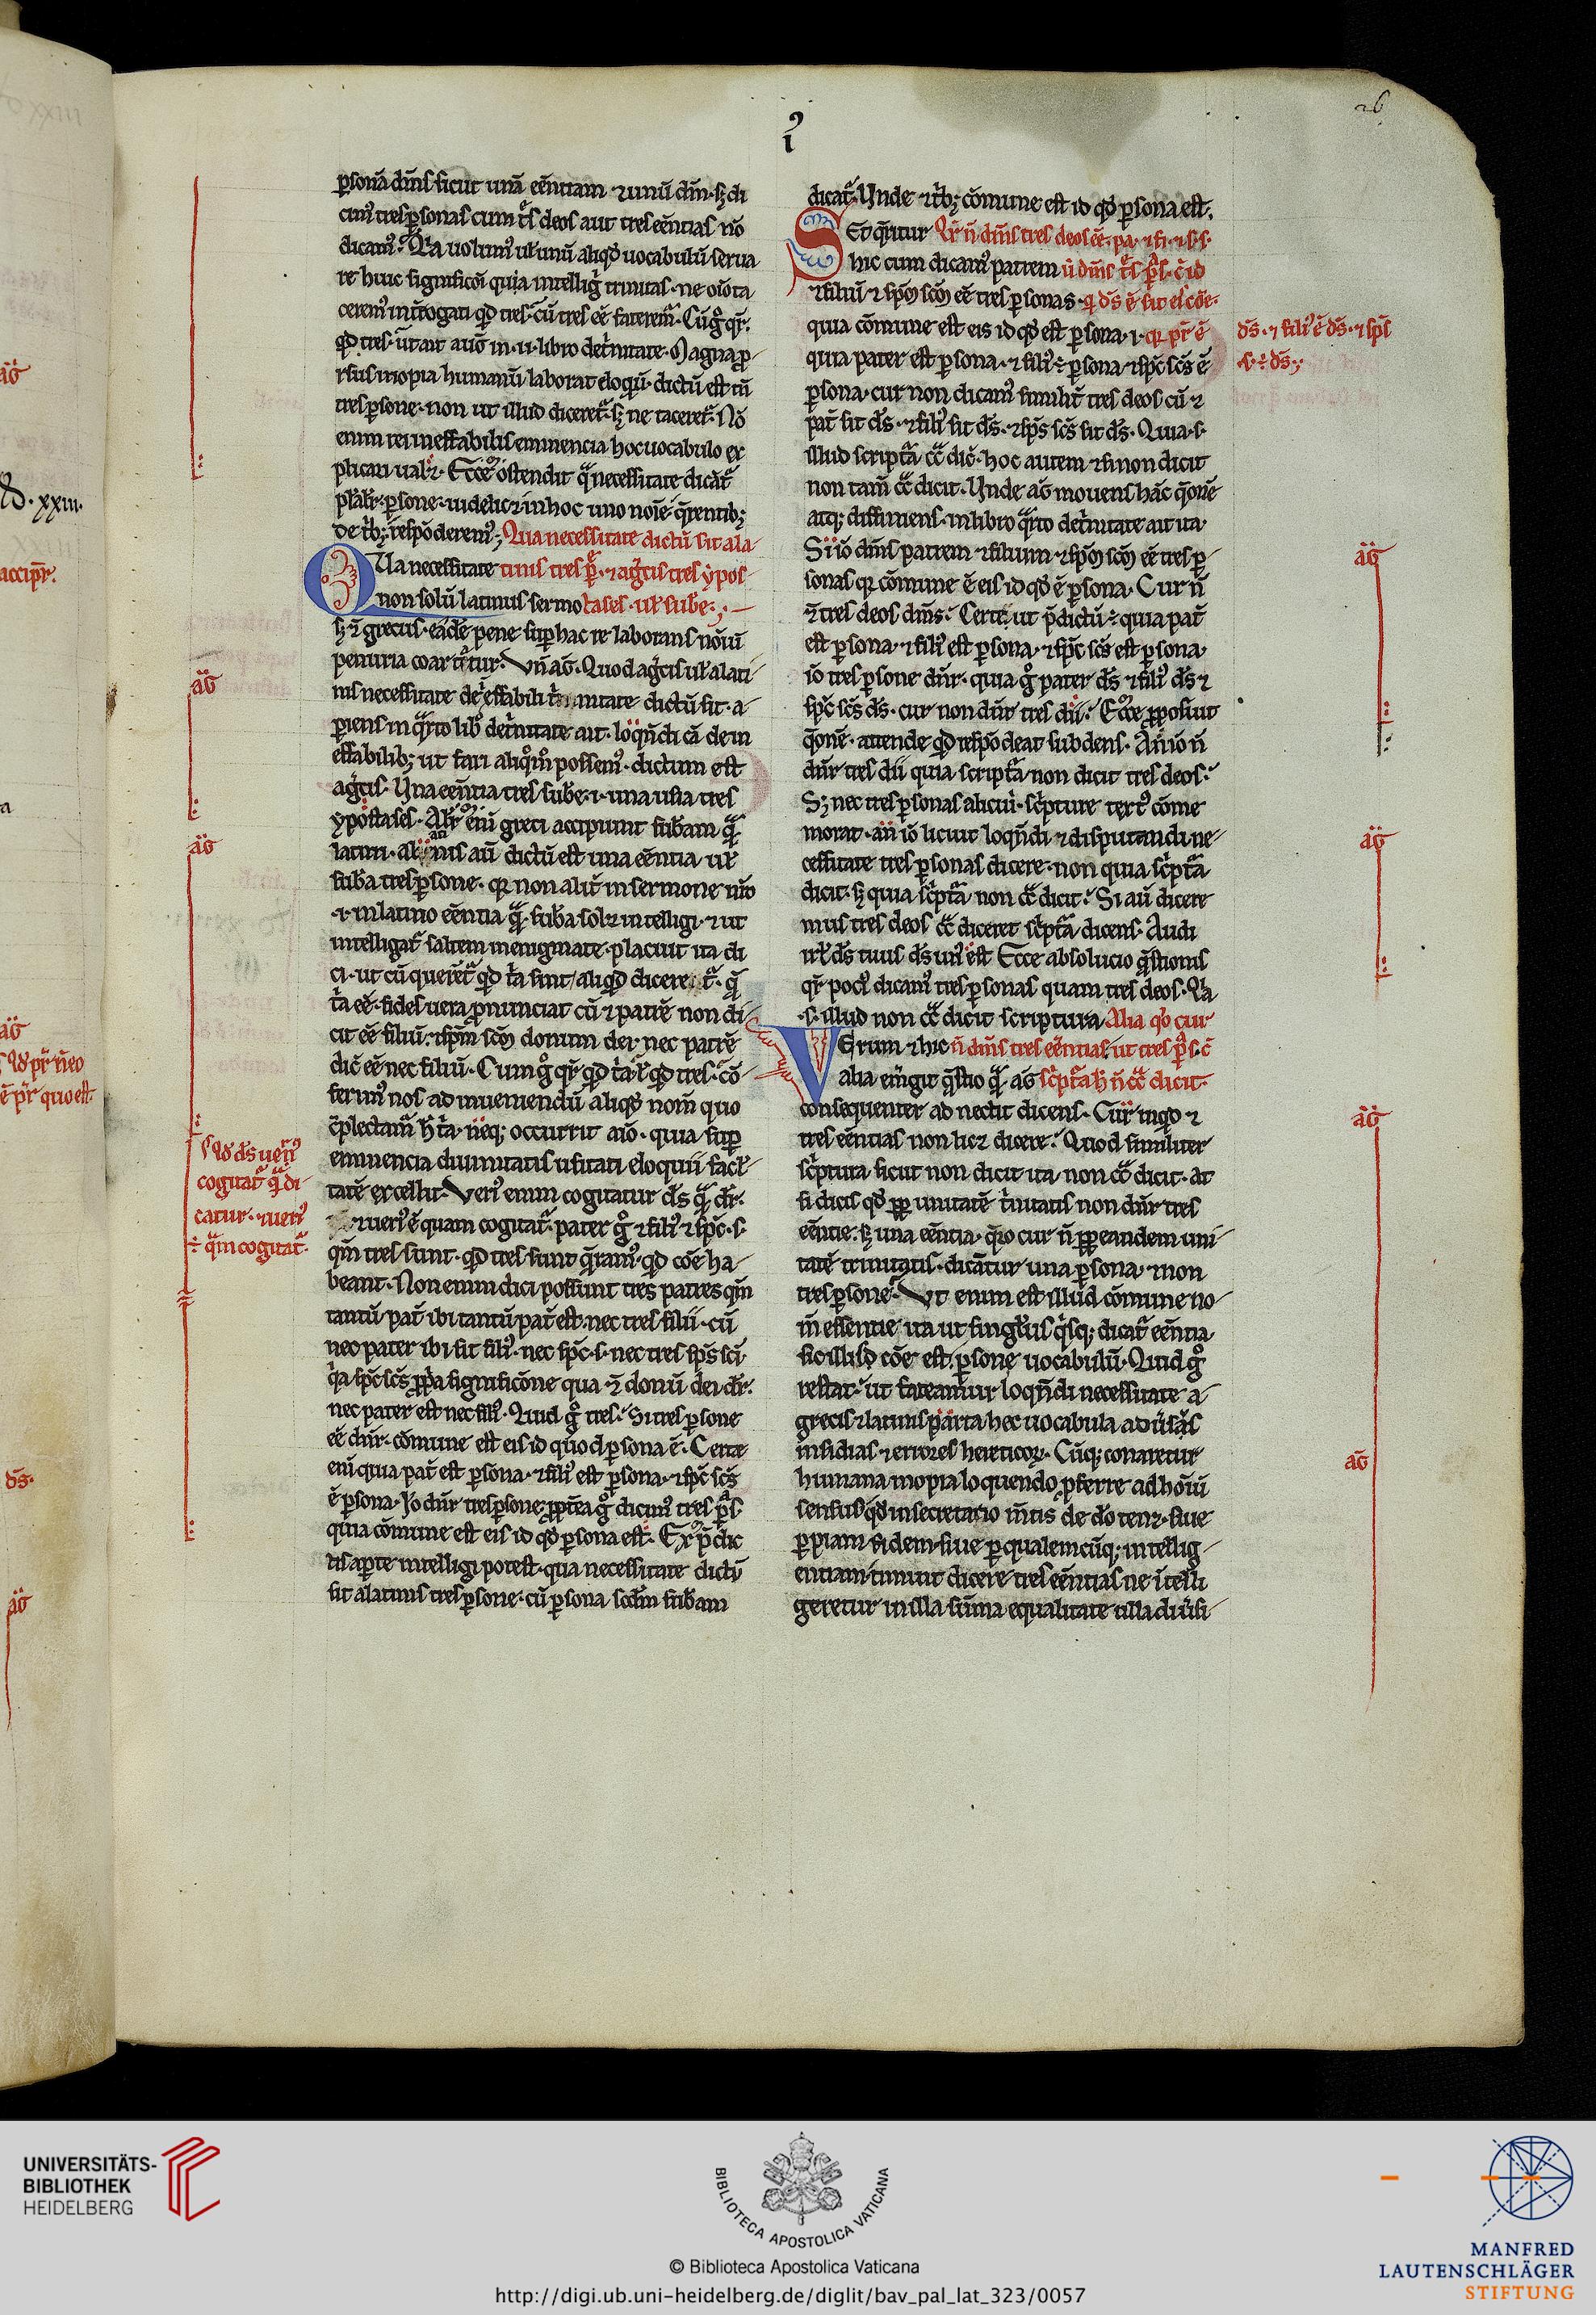 26
ꝯ
i
ꝑsonā dm̄s sicut unā eēntiam ⁊ unū dm̄. sꝫ di
cimꝰ tres ꝑsonas cum tͥs deos aut tres eēntias nō
dicamꝰ? Qͥa uolumꝰ ul̓ unū aliqd̓ uocabulū serua
re huic significōi quia intelligͥ trinitas. ne oīo ta
ceremꝰ int̓rogati qͥd tres. cū tres eē faterem̓. Cū gͦ qr̄.
qͥd tres. ut ait auḡ in .v. libro de tͥnitate. Magna ꝓ
rsus inopia humanū laborat eloqͥū. dictū est tn̄
tres ꝑsone. non ut illud diceret̓. sꝫ ne taceret̓. Nō
enim rei ineffabilis eminencia hoc uocabulo ex
plicari ualꝫ. Ecce ostendit qͣ necessitate dicat̓
pl̓alit̓ ꝑsone. uidelicꝫ ut hoc uno noīe q̄rentibꝫ
de tͥbꝫ respōderemꝰ. Qua necessitate dictū sit a la
QUa necessitate tinis tres ꝑͤ. ⁊ a gͤcis tres ypos
non solū latinus sermo tases. ul̓ sub̄e.
sꝫ ⁊ grecus. eadē pene sup̓ hac re laborans noīū
penuria coartatur. Vn̄ aḡ. Quod a gͤcis ul̓ a lati
nis necessitate de ineffabili tͥnitate dictū sit. a
periens in qͣrto libͦ de tͥnitate ait. loqn̄di cā de in
effabilibꝫ ut fari aliqͦm̊ possemꝰ. dictum est
a gͤcis. Una eēntia tres sub̄e. i. una usia tres
ypostases. Alit̓ enī greci accipiunt sub̄am qͣ
latini. a latinis aū dictū est una eēntia ul̓
sub̄a tres ꝑsone. qꝛ non alit̓ in sermone nr̄o
.i. in latino eēntia qͣ. sub̄a solꝫ intelligi. ⁊ ut
intelligat̓ saltem in enigmate. placuit ita di
ci. ut cū queret̓ qͥd tͥa sint / aliqͥd diceret̓. qͤ
tͥa eē. fides uera ꝓnunciat cū ⁊ patrē non di
cit eē filiū. ⁊ spm̄ scm̄ donum dei. nec patrē
dic̄ eē nec filiū. Cum gͦ qr̄ qͥd tͥa ul̓ qͥd tres. cō
ferimꝰ nos ad inueniendū aliqd̓ nom̄ quo
ꝯplectam̓ hͨ tͥa. neqꝫ occurrit aīo. quia sup̓
eminencia diuinitatis usitati eloquii facl̓
tatē excellit. Verꝰ enim cogitatur ds̄ qͣ dr̄.
⁊ uerꝰ ē quam cogitat̓. pater gͦ ⁊ filiꝰ ⁊ spc̄ .s.
qm̄ tres sunt. qͥd tres sunt q̄ramꝰ. qͥd cōe ha
beant. Non enim dici possunt tres patres qm̄
tantū pat̓ ibi tantū pat̓ est. nec tres filii. cū
nec pater ibi sit filiꝰ. nec spc̄ .s. nec tres sps̄ sci
qͥa spc̄ scs̄ ꝓpͥa significōne qua ⁊ donū dei dr̄.
nec pater est nec filiꝰ. Quid gͦ tres? Si tres ꝑsone
eē dn̄r. cōmune est eis id quod ꝑsona ē. Certe
enī quia pat̓ est ꝑsona. ⁊ filiꝰ est ꝑsona. ⁊ spc̄ scs̄
ē ꝑsona. Iō dn̄r tres ꝑsone. ꝓpt̓ea gͦ dicimꝰ tres ꝑͣs.
quia cōmune est eis id qd̓ ꝑsona est. Ex p̄dic
tis aꝑte intelligi potest. qua necessitate dictū
sit a latinis tres ꝑsone. cū ꝑsona scdm̄ sub̄am
dicat̓. Unde ⁊ tͥbꝫ cōmune est id qd̓ ꝑsona est.
SEd q̄ritur Qͬ n̄ dm̄s tres deos eē. pa. ⁊ fi. ⁊ s.s.
hic cum dicamꝰ patrem ū dm̄s tͤs ꝑͣs. c̄ id
⁊ filiū ⁊ spm̄ scm̄ eē tres ꝑsonas. qͥ ds̄ ē sit eis cōe.
quia cōmune est eis id qd̓ est ꝑsona. i. qꝛ pr̄ ē
quia pater est ꝑsona. ⁊ filiꝰ ÷ ꝑsona ⁊ spc̄ scs̄ ē
ꝑsona. cur non dicamꝰ similit̓ tres deos cū ⁊
pat̓ sit ds̄. ⁊ filiꝰ sit ds̄. ⁊ sps̄ scs̄ sit ds̄. Quia .s.
illud scriptͣa ꝯͣdic̄. hoc autem ⁊ si non dicit
non tam̄ ꝯͣdicit. Unde aḡ mouens hāc q̄onē
atqꝫ diffiniens. in libro qͣrto de tͥnitate ait ita.
Si iō dm̄s patrem ⁊ filium ⁊ spm̄ scm̄ eē tres ꝑ
sonas qꝛ cōmune ē eis id qd̓ ē ꝑsona. Cur n̄
⁊ tres deos dm̄s? Certe ut p̄dictū ÷ quia pat̓
est ꝑsona. ⁊ filiꝰ est ꝑsona. ⁊ spc̄ scs̄ est ꝑsona.
iō tres ꝑsone dn̄r. quia gͦ pater ds̄ ⁊ filiꝰ ds̄ ⁊
spc̄ scs̄ ds̄. cur non dn̄r tres dii? Ecce ꝓposuit
q̄onē. attende qͥd respōdeat subdens. An iō n̄
dn̄r tres dii quia scriptͣa non dicit tres deos?
Sꝫ nec tres ꝑsonas alicui͛ scͥpture textꝰ cōme
morat. an iō licuit loqn̄di ⁊ disputandi ne
cessitate tres ꝑsonas dicere. non quia scͥptͣa
dicit. sꝫ quia scͥptͣa non ꝯͣdicit? Si aū dicere
mus tres deos ꝯͣdiceret scͥptͣa dicens. Audi
isrl̓ ds̄ tuus ds̄ unꝰ est Ecce absolucio q̄stionis
qͬ pociꝰ dicamꝰ tres ꝑsonas quam tres deos. Qͥa
.s. illud non ꝯͣdicit scriptura Alia qō cur
VErum ⁊ hic n̄ dm̄s tres eēntias. ut tres ꝑͣs. c̄
alia emͥgit q̄stio qͣ aḡ scͥptͣa hͨ n̄ ꝯͣdicit.
consequenter adnectit dicens. Cur inqͥd ⁊
tres eēntias non licꝫ dicere? Quod similiter
scͥptura sicut non dicit ita non ꝯͣdicit. at
si dicis qd̓ ꝓp̄ unitatē tͥnitatis non dn̄r tres
eēntie. sꝫ una eēntia. q̄ro cur n̄ ꝓp̄ eandem uni
tatē trinitatis. dicātur una ꝑsona. ⁊ non
tres ꝑsone? Vt enim est illud cōmune no
m̄ essentie ita ut singl̓us qͥsqꝫ dicat̓ eēntia.
sic illud cōe est ꝑsone uocabulū. Quid gͦ
restat? ut fateamur loqn̄di necessitate a
grecis ⁊ latinis parta hec uocabula aduͥsꝰ
insidias ⁊ errores hereticoꝝ. Cūqꝫ conaretur
humana inopia loquendo ꝓferre ad hoīū
sensus qd̓ in secretario m̄tis de deo tenꝫ. siue
ꝑ piam fidem. siue ꝑ qualemcūqꝫ intellig
entiam. timuit dicere tres eēntias ne ītelli
geretur in illa sūma equalitate ulla diuͥsi
aḡ
aḡ
S. qd̓ ds̄ uerꝰ
cogitat̓ qͣ di
catur. ⁊ uerꝰ
÷ qͣm cogitat̓.
ds̄. ⁊ filiꝰ ē ds̄. ⁊ sps̄
.s. ÷ ds̄.
aḡ
aḡ
aḡ
aḡ
aḡ
D. xxiii.
accipr̄.
aḡ
qd̓ pr̄ n̄ eo
ē pr̄ quo est.
ds̄.
aḡ
UNIVERSITÄTS-
BIBLIOTHEK
HEIDELBERG
BIBLIOTECA APOSTOLICA VATICANA
© Biblioteca Apostolica Vaticana
http://digi.ub.uni-heidelberg.de/diglit/bav_pal_lat_323/0057
MANFRED
LAUTENSCHLÄGER
STIFTUNG